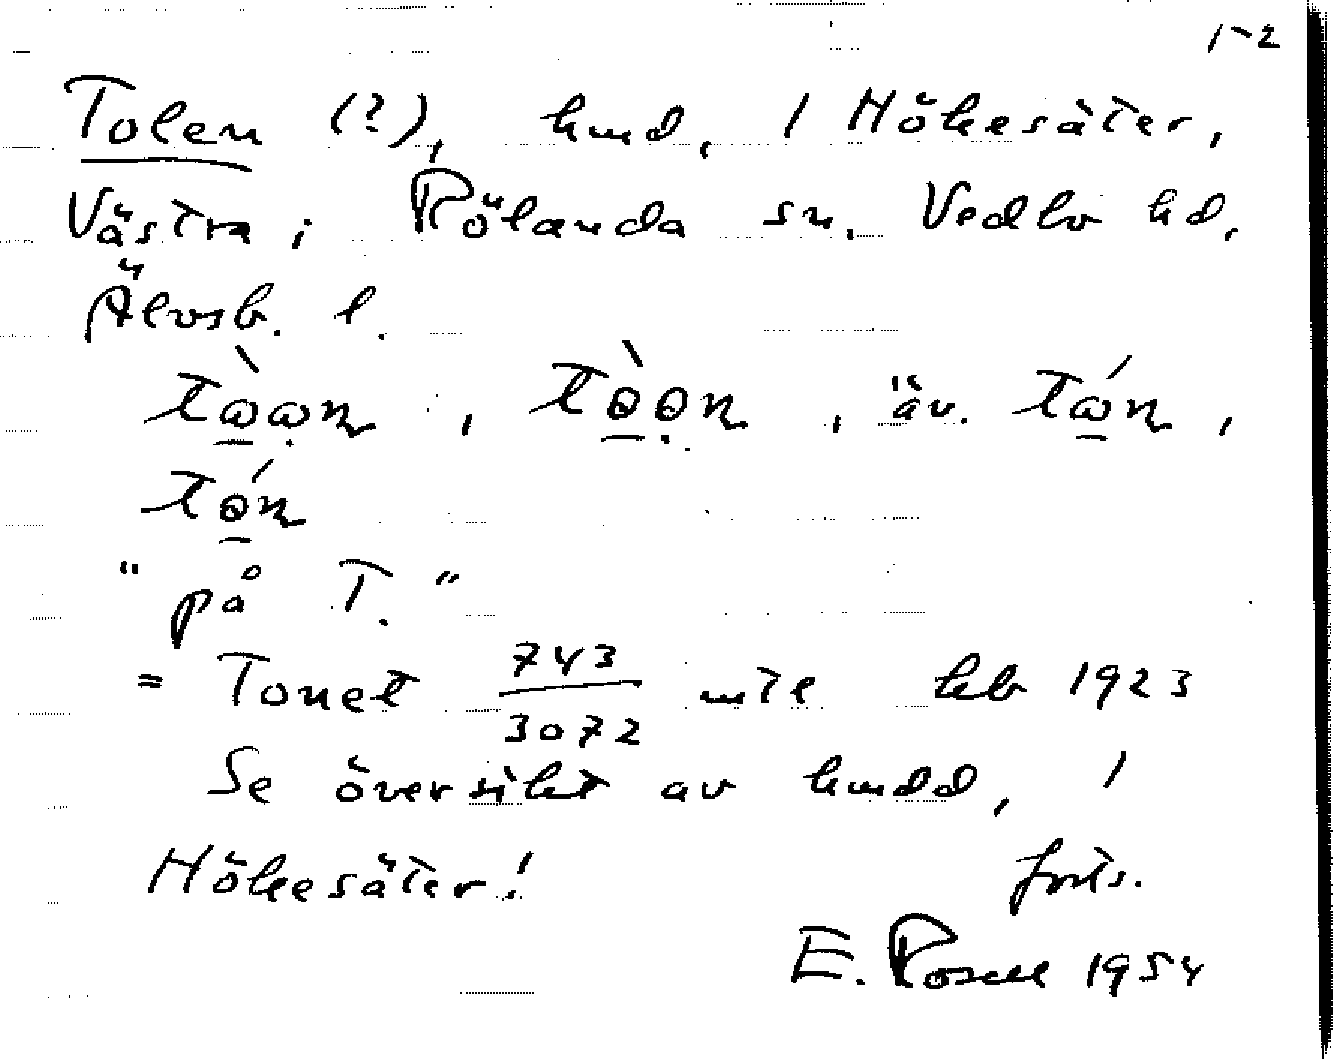 1-2
Tolen (?), hmd, / Hökesäter,
Västra; Rölanda sn. Vedbo hd,
Älvsb. l.
, äv. ,
"på T."
= Tonet 743/3072 mtr hkb 1923
Se översikt av hmdd, /
Hökesäter! forts.
E. Rosell 1954